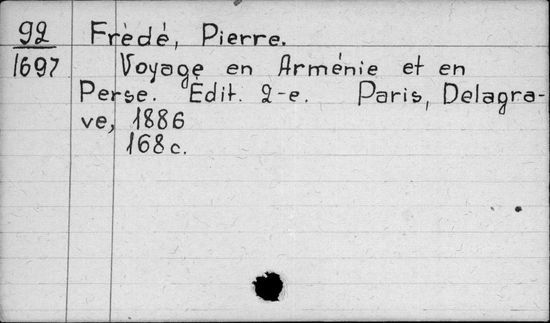 92 Frèdé, Pierre.
1697 Voyage en Arménie et en
Perse. Edit. 2-e. Paris, Delagra-
ve, 1886
168c.